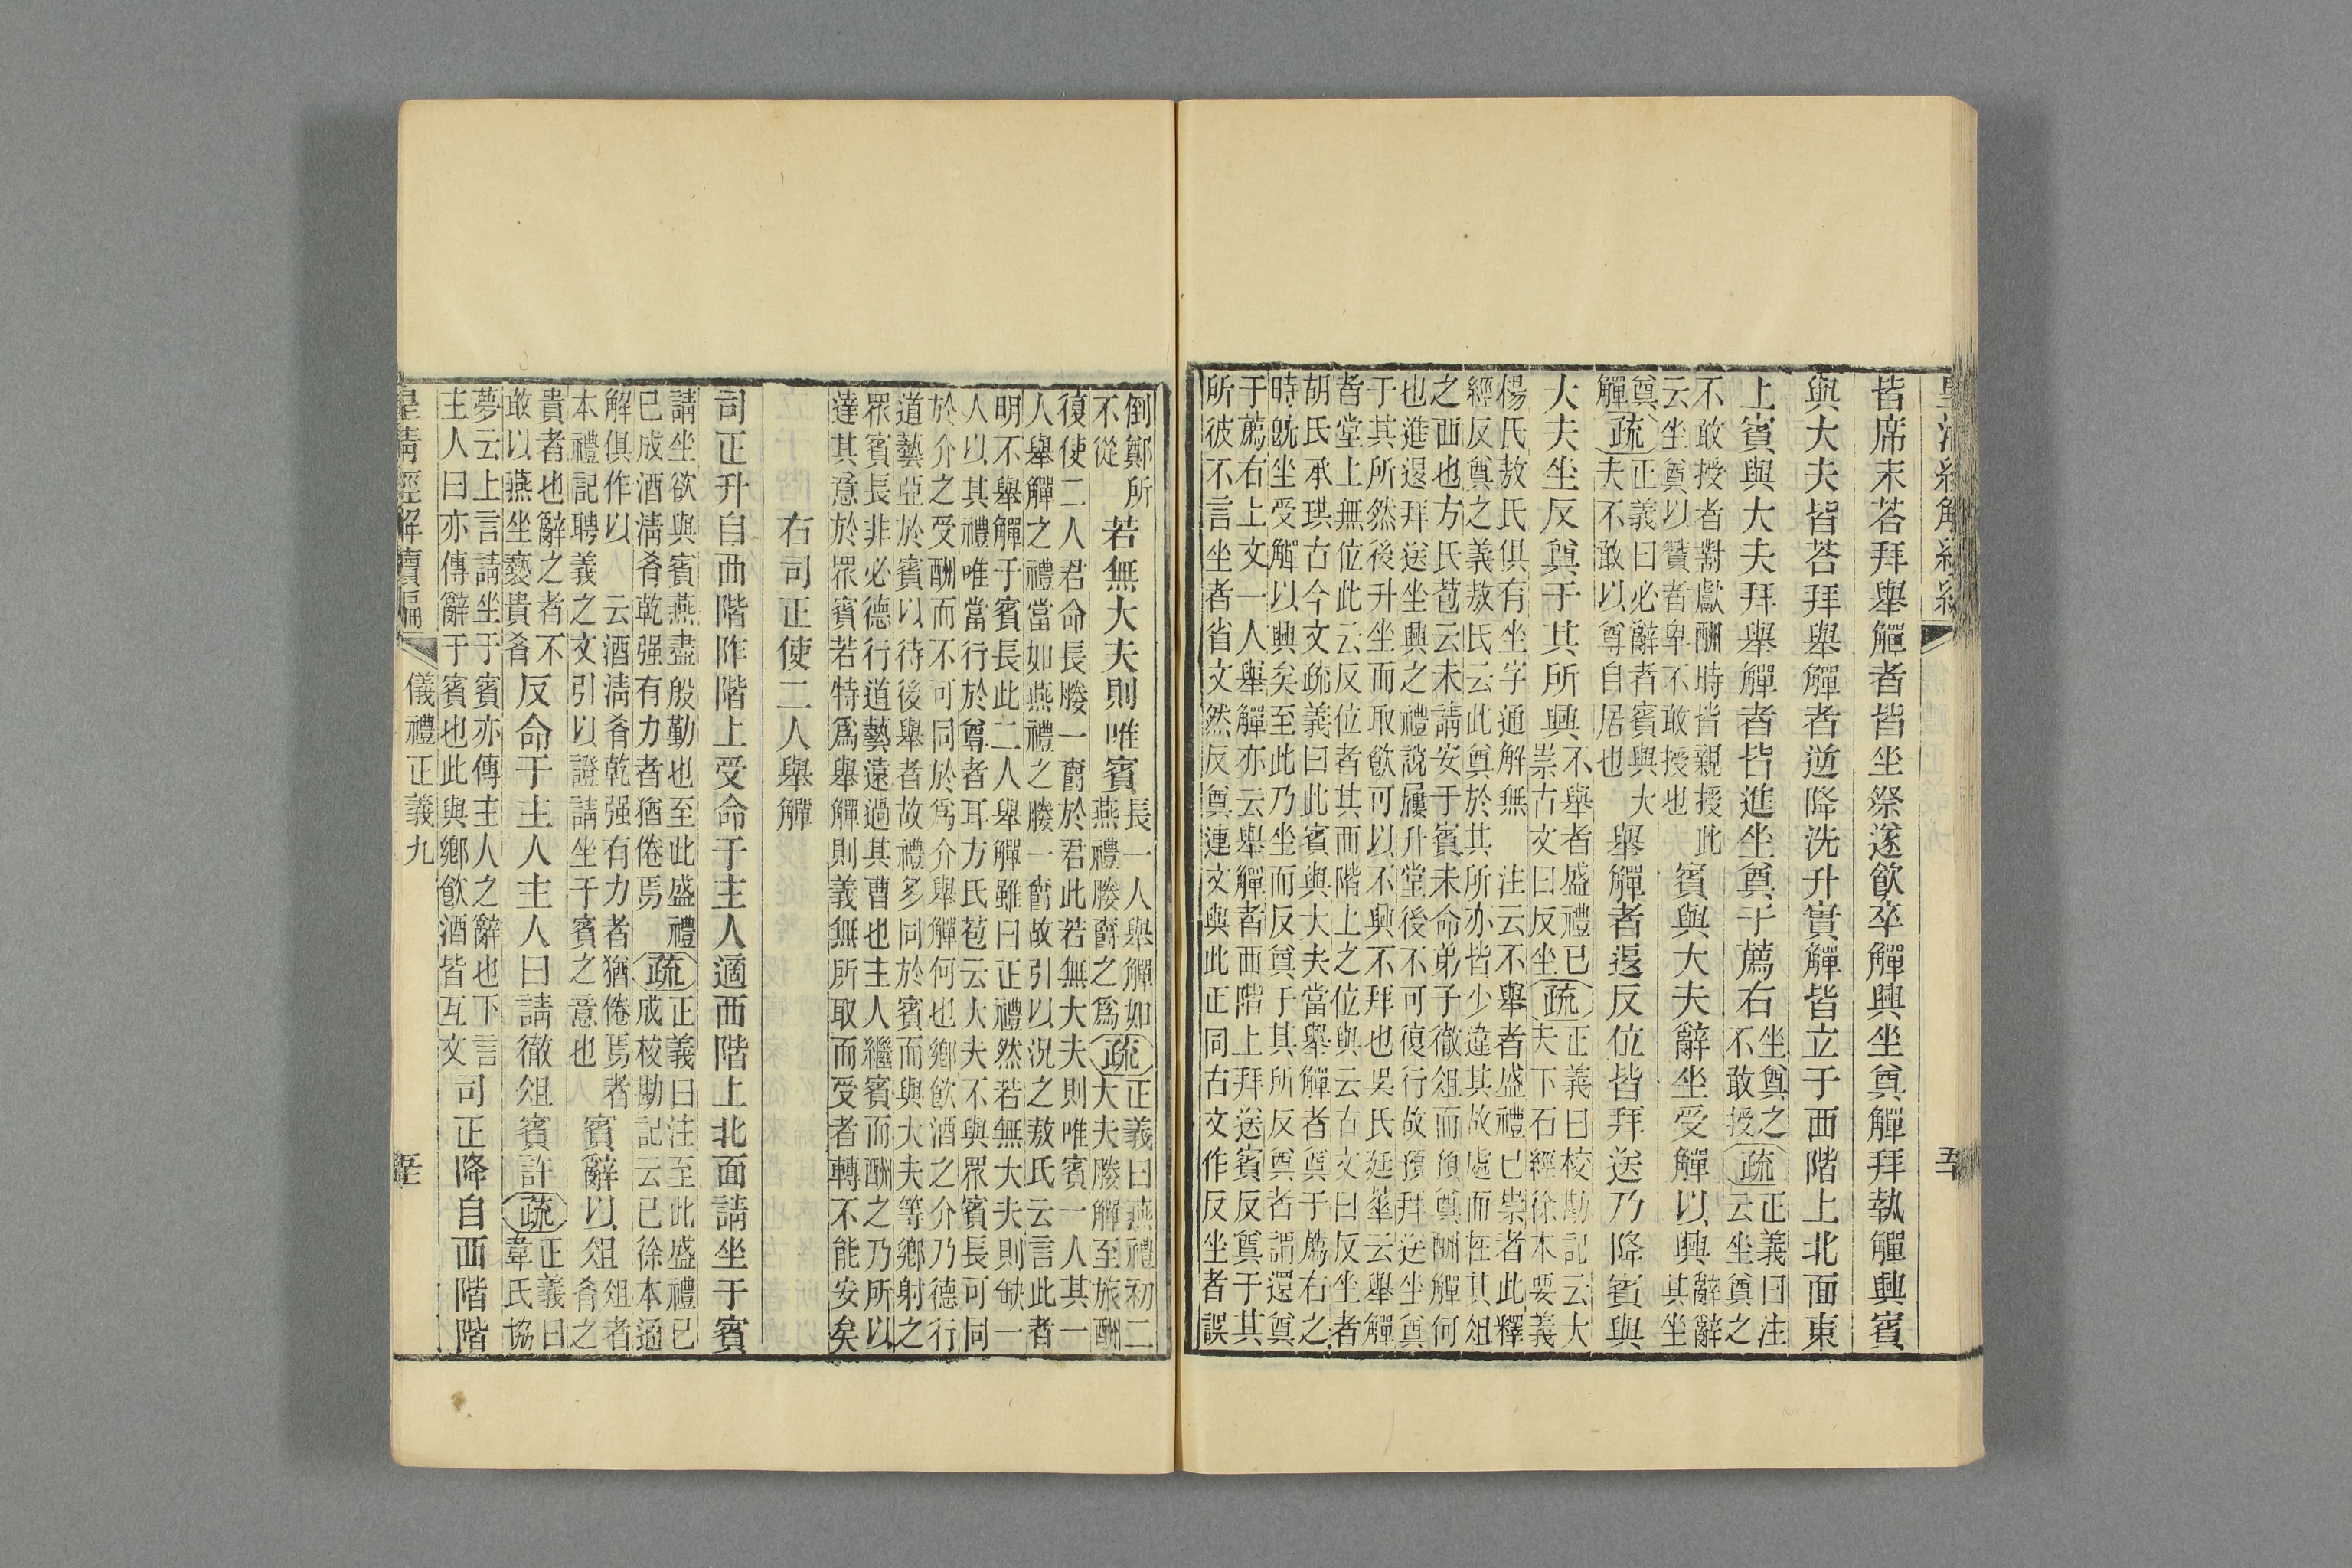 皆席末荅拜舉觶者皆坐祭遂飮卒觶興坐奠觶拜執觶興賓
與大夫皆荅拜舉觶者逆降洗升實觶皆立于西階上北面東
上賓與大夫拜舉觶者皆進坐奠于薦右
坐奠之
不敢授
疏
正義曰注
云坐奠之
不敢授者對獻酬時皆親授此
云坐奠以贊者卑不敢授也
賓與大夫辭坐受觶以興
辭辭
其坐
奠
觶
疏
正義曰必辭者賓與大
夫不敢以尊自居也
舉觶者退反位皆拜送乃降賓與
大夫坐反奠于其所興
不舉者盛禮已
崇古文曰反坐
疏
正義曰校勘記云大
夫下石經徐本要義
楊氏敖氏俱有坐字通解無 注云不舉者盛禮已崇者此釋
經反奠之義敖氏云此奠於其所亦皆少違其故處而在其俎
之西也方氏苞云未請安于賓未命弟子徹俎而預奠酬觶何
也進退拜送坐興之禮說屨升堂後不可復行故預拜送坐奠
于其所然後升坐而取飮可以不興不拜也吳氏廷華云舉觶
者堂上無位此云反位者其西階上之位與云古文曰反坐者
胡氏承珙古今文疏義曰此賓與大夫當舉觶者奠于薦右之
時旣坐受觶以興矣至此乃坐而反奠于其所反奠者謂還奠
于薦右上文一人舉觶亦云舉觶者西階上拜送賓反奠于其
所彼不言坐者省文然反奠連文與此正同古文作反坐者誤
倒鄭所
不從
若無大夫則唯賓
長一人舉觶如
燕禮媵爵之爲
疏
正義曰燕禮初二
大夫媵觶至旅酬
復使二人君命長媵一爵於君此若無大夫則唯賓一人其一
人舉觶之禮當如燕禮之媵一爵故引以況之敖氏云言此者
明不舉觶于賓長此二人舉觶雖曰正禮然若無大夫則缺一
人以其禮唯當行於尊者耳方氏苞云大夫不與眾賓長可同
於介之受酬而不可同於爲介舉觶何也鄉飮酒之介乃德行
道藝亞於賓以待後舉者故禮多同於賓而與大夫等鄉射之
眾賓長非必德行道藝遠過其曹也主人繼賓而酬之乃所以
達其意於眾賓若特爲舉觶則義無所取而受者轉不能安矣
右司正使二人舉觶
司正升自西階阼階上受命于主人適西階上北面請坐于賓
請坐欲與賓燕盡殷勤也至此盛禮
已成酒淸肴乾强有力者猶倦焉
疏
正義曰注至此盛禮已
成校勘記云已徐本通
解俱作以 云酒淸肴乾强有力者猶倦焉者
本禮記聘義之文引以證請坐于賓之意也
賓辭以俎
俎者
肴之
貴者也辭之者不
敢以燕坐褻貴肴
反命于主人主人曰請徹俎賓許
疏
正義曰
韋氏協
夢云上言請坐于賓亦傳主人之辭也下言
主人曰亦傳辭于賓也此與鄉飮酒皆互文
司正降自西階階
皇淸經解續編
儀禮正義九